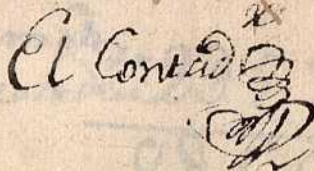 El Contad